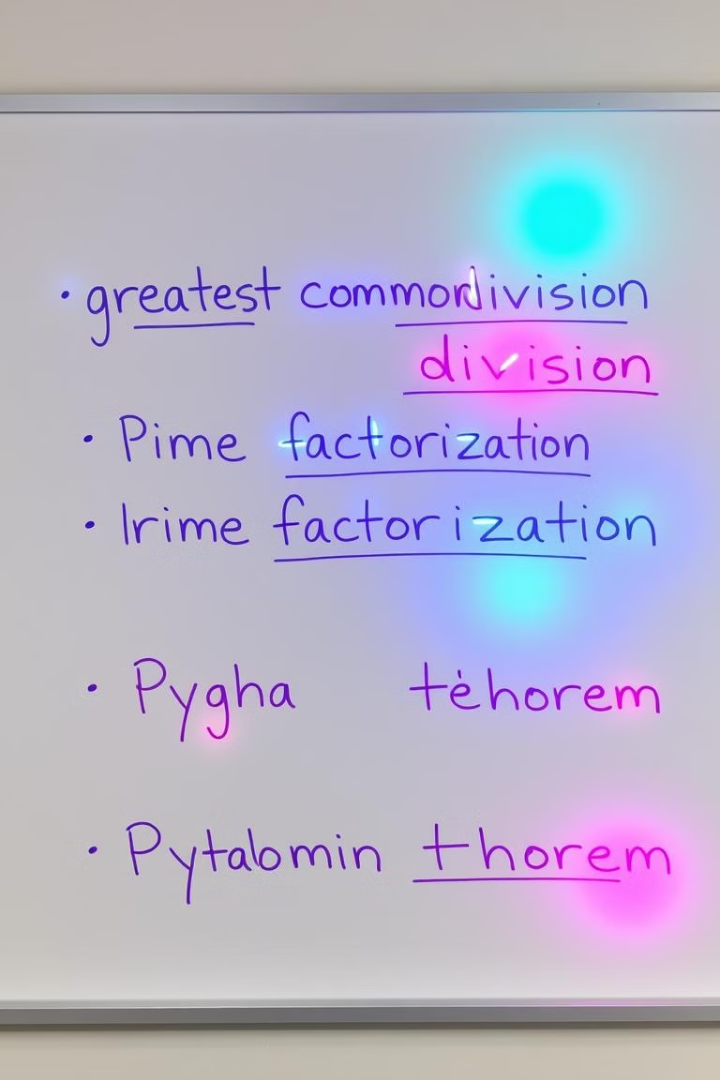 • greatest commordivision
division
• Pime factorization
• Irime factorization
• Pygha tėhorem
• Pytabmin thorem